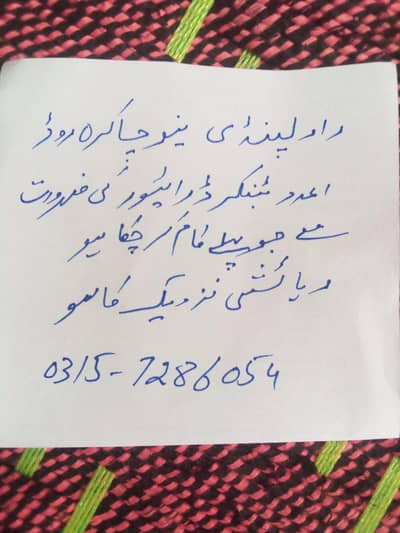 راولپنڈی نیو چاکرہ روڈ
اعدد ٹینکر ڈرائیور کی ضرورت
ہے جو پہلے کام کر چکا ہو
رہائشی نزدیک کا ہو
0315-7286054